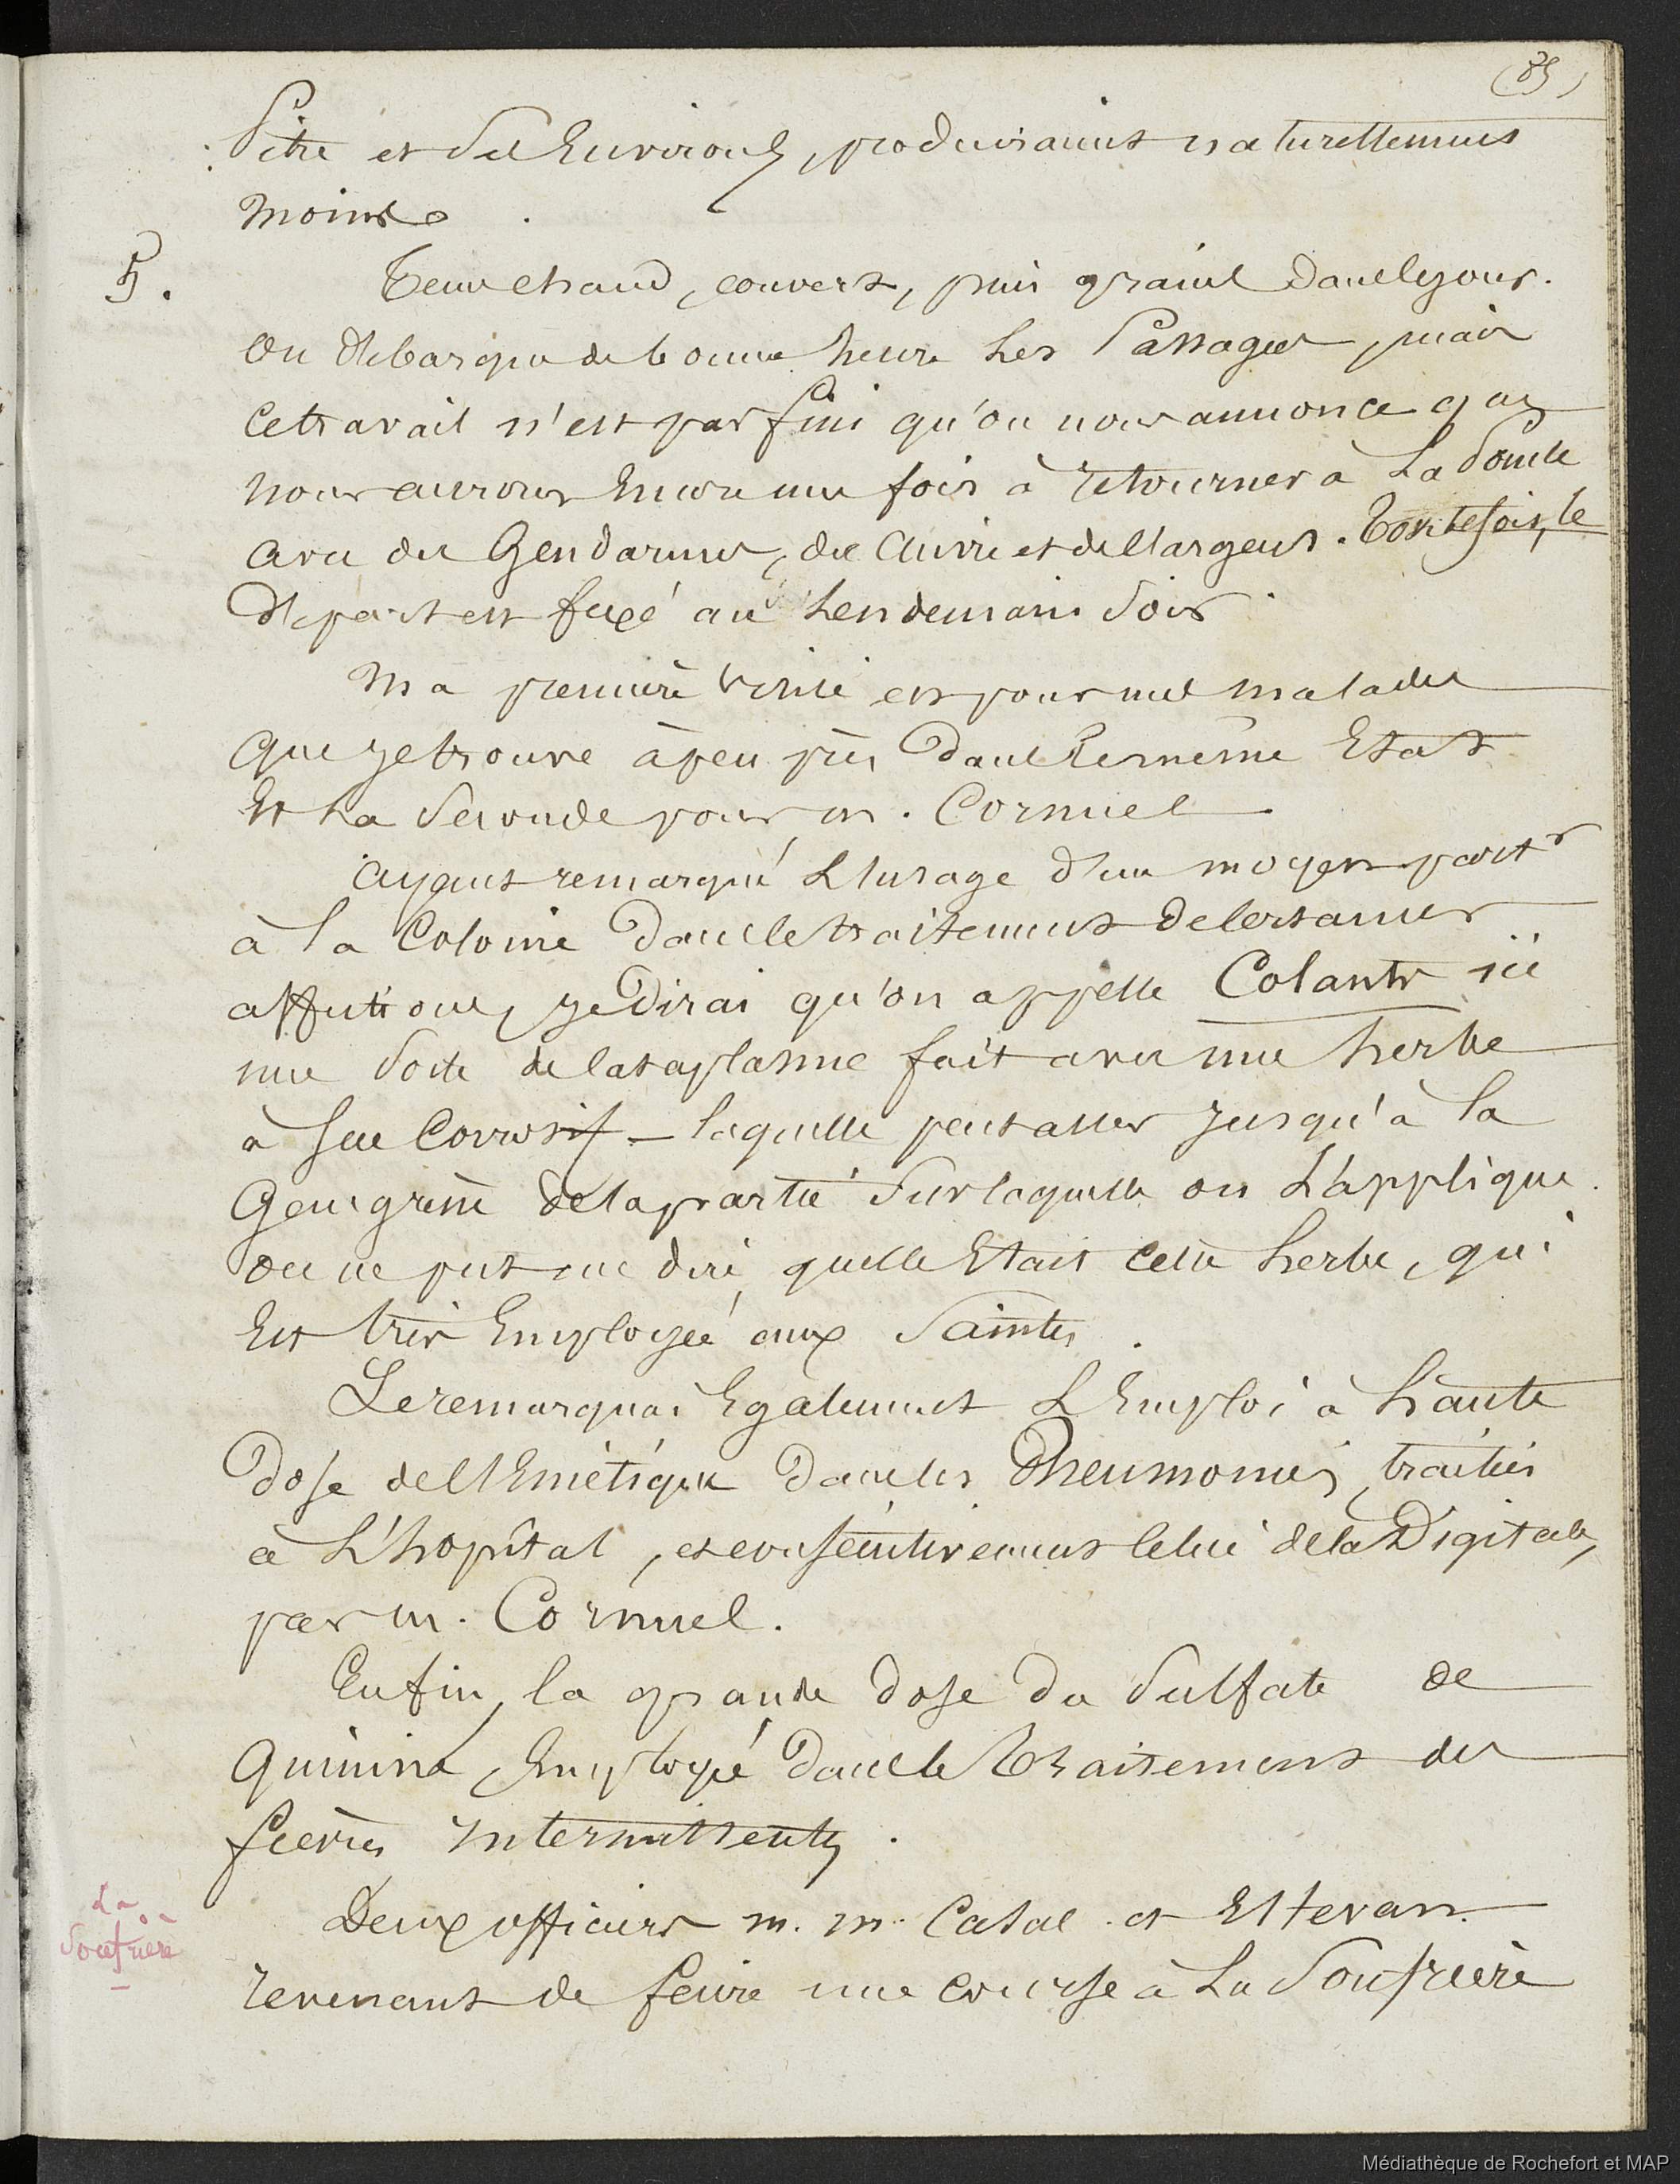 (85)
Pitre et Ses Environs, produisaient naturellement
moins.
5. Tems chaud, couvert, puis grains dans le jour.
On débarqua de bonne heure les Passagers, mais
ce travail n'est pas fini qu'on nous annonce que
nous aurons Encore une fois à retourner à La Pointe
avec des Gendarmes, du Cuivre et de l'argent. Toutefois, le
départ est fixé au Lendemain Soir.
Ma première visite est pour mes malades
que je trouve à peu près dans le même Etat
Et La Seconde pour m. Cornuel
Ayant remarqué L'usage d'un moyen partr
à la Colonie dans le traitement de certaines
affections, je dirai qu'on appelle Colants ici
une Sorte de Cataplasme fait avec une herbe
à Suc Corrosif – laquelle peut aller jusqu'à la
Gangrène de la partie Sur laquelle on L'applique.
on ne put me dire quelle Etait cette herbe, qui
Est très Employée aux Saintes.
Je remarquai Egalement L'Emploi à haute
dose de l'Emétique dans les Pneumonies, traitées
à L'hopital, et consécutivement Celui de la Digitale,
par m. Cornuel.
Enfin, la grande dose du Sulfate de
Quinine, Employé dans le Traitement des
fièvres intermittentes.
La
Soufrière
Deux officiers m.m. Casal et Estevan
revenant de faire une course à La Soufrière
Médiathèque de Rochefort et MAP